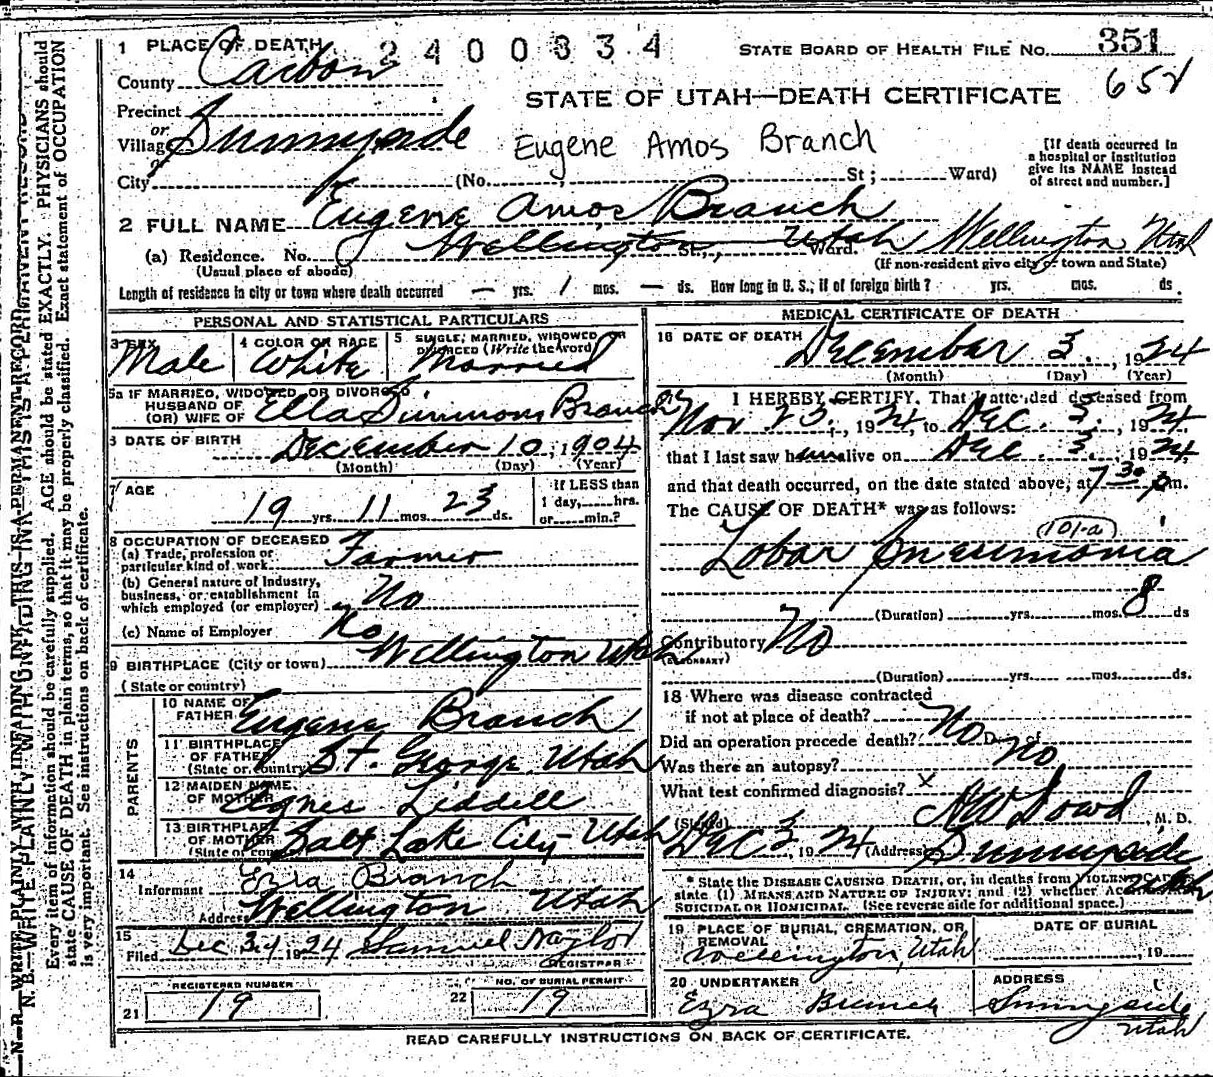 1 PLACE OF DEATH 2400334 STATE BOARD OF HEALTH FILE No. 351
County Carbon 654
STATE OF UTAH—DEATH CERTIFICATE
Precinct
or
Village Sunnyside
Eugene Amos Branch
[If death occurred in
a hospital or institution
give its NAME instead
of street and number.]
City (No. St; Ward)
2 FULL NAME Eugene Amos Branch
(a) Residence. No. Wellington Utah St., Ward. Wellington Utah
(Usual place of abode) (If non-resident give city or town and State)
Length of residence in city or town where death occurred — yrs. 1 mos. — ds. How long in U. S., if of foreign birth? yrs. mos. ds.
PERSONAL AND STATISTICAL PARTICULARS
3 SEX Male
4 COLOR OR RACE White
5 SINGLE, MARRIED, WIDOWED OR
DIVORCED (Write the word) Married
5a IF MARRIED, WIDOWED, OR DIVORCED
HUSBAND OF
(OR) WIFE OF Ella Simmons Branch
6 DATE OF BIRTH December 10, 1904
(Month) (Day) (Year)
7 AGE 19 yrs. 11 mos. 23 ds.
If LESS than
1 day, hrs.
or min.?
8 OCCUPATION OF DECEASED
(a) Trade, profession or
particular kind of work Farmer
(b) General nature of Industry,
business, or establishment in
which employed (or employer) No
(c) Name of Employer No
9 BIRTHPLACE (City or town) Wellington Utah
(State or country)
PARENTS
10 NAME OF
FATHER Eugene Branch
11 BIRTHPLACE
OF FATHER
(State or country) St. George, Utah
12 MAIDEN NAME
OF MOTHER Agnes Liddell
13 BIRTHPLACE
OF MOTHER
(State or country) Salt Lake City - Utah
14
Informant Ezra Branch
Address Wellington Utah
15
Filed Dec 3, 1924 Samuel Naylor
REGISTRAR
21 REGISTERED NUMBER 19
22 NO. OF BURIAL PERMIT 19
MEDICAL CERTIFICATE OF DEATH
16 DATE OF DEATH December 3, 1924
(Month) (Day) (Year)
I HEREBY CERTIFY, That I attended deceased from
Nov 25, 1924, to Dec. 3, 1924
that I last saw him alive on Dec 3, 1924,
and that death occurred, on the date stated above, at 7 30 p m.
The CAUSE OF DEATH* was as follows:
101-a
Lobar Pneumonia
(Duration) yrs. mos. 8 ds
Contributory No
(SECONDARY)
(Duration) yrs. mos. ds.
18 Where was disease contracted
if not at place of death?
Did an operation precede death? No Date of
Was there an autopsy? No
What test confirmed diagnosis? X
(Signed) A W Dowd, M. D.
Dec 3, 1924 (Address) Sunnyside
Utah
* State the DISEASE CAUSING DEATH, or, in deaths from VIOLENT CAUSES
state (1) MEANS AND NATURE OF INJURY; and (2) whether ACCIDENTAL
SUICIDAL OR HOMICIDAL. (See reverse side for additional space.)
19 PLACE OF BURIAL, CREMATION, OR
REMOVAL
Wellington, Utah
DATE OF BURIAL
, 19
20 UNDERTAKER
Ezra Branch
ADDRESS
Sunnyside
Utah
READ CAREFULLY INSTRUCTIONS ON BACK OF CERTIFICATE.
N. B.—WRITE PLAINLY WITH UNFADING INK—THIS IS A PERMANENT RECORD
Every item of information should be carefully supplied. AGE should be stated EXACTLY. PHYSICIANS should
state CAUSE OF DEATH in plain terms, so that it may be properly classified. Exact statement of OCCUPATION
is very important. See instructions on back of certificate.